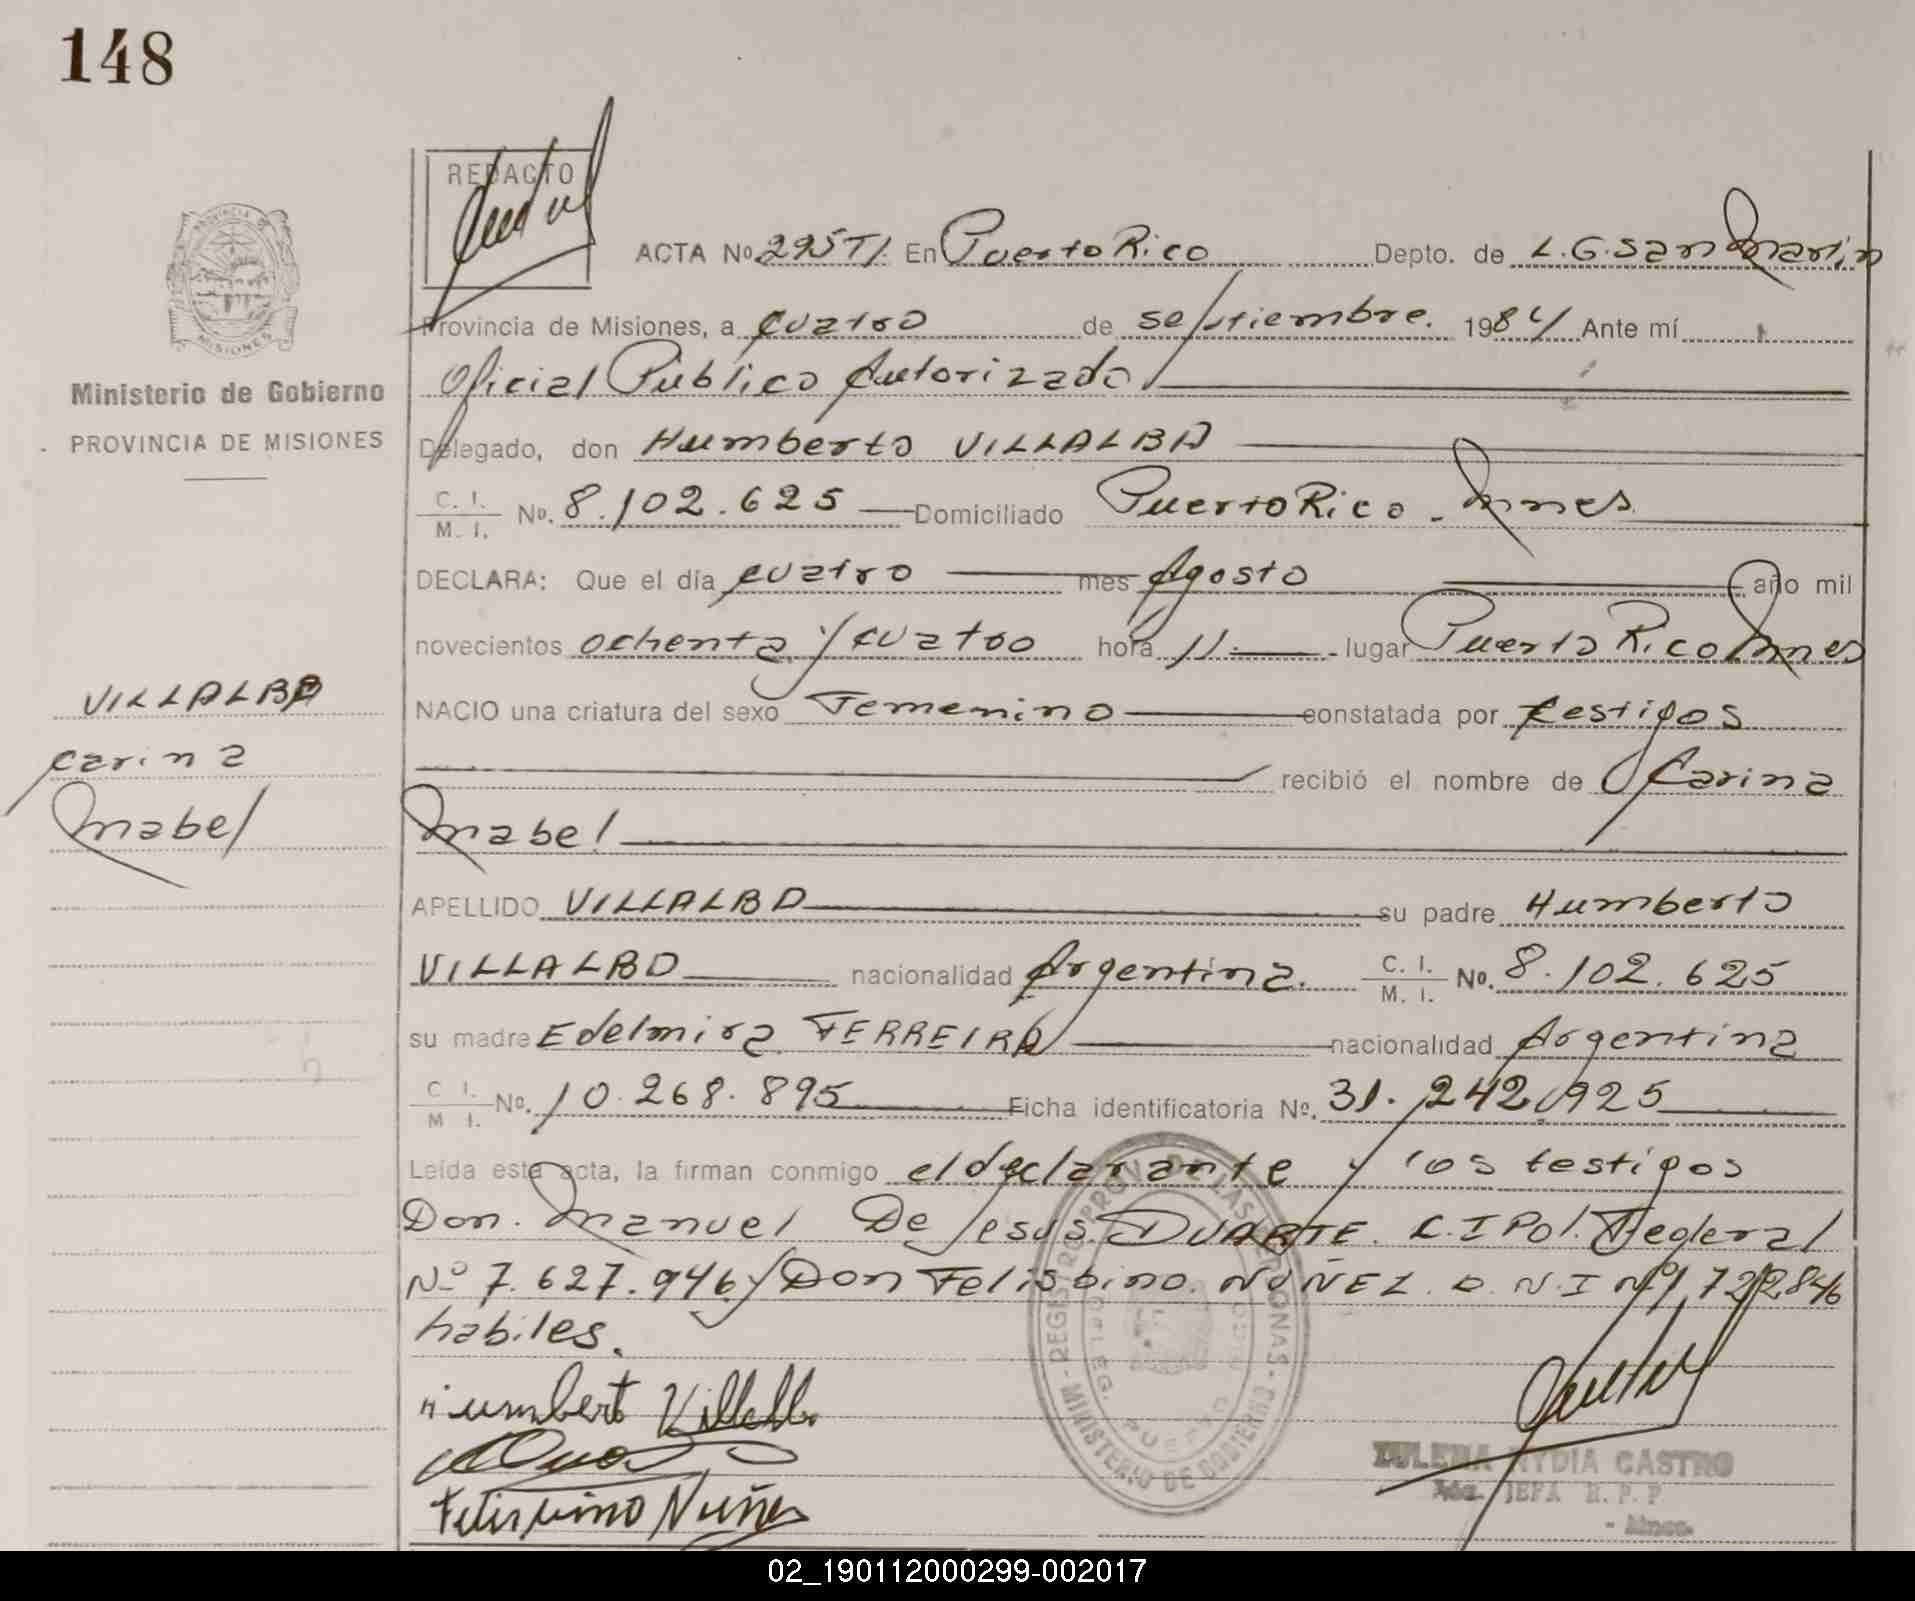 148
REDACTO
ACTA No 295 TI. En Puerto Rico Depto. de L.G. San Martin
Provincia de Misiones, a cuatro de septiembre. 1984 Ante mí
Oficial Público Autorizado
Delegado, don Humberto VILLALBA
C. I. / M. I. No. 8.102.625 Domiciliado Puerto Rico - Mnes
DECLARA: Que el día cuatro mes Agosto año mil
novecientos ochenta y cuatro hora 11 lugar Puerto Rico Mnes
NACIO una criatura del sexo Femenino constatada por testigos
recibió el nombre de Carina
Mabel
APELLIDO VILLALBA su padre Humberto
VILLALBA nacionalidad Argentina. C. I. / M. I. No. 8.102.625
su madre Edelmira FERREIRA nacionalidad Argentina
C I. / M I. No. 10.268.895 Ficha identificatoria Nº. 31.242.925
Leída esta acta, la firman conmigo el declarante y los testigos
Don. Manuel De Jesus. DUARTE. C.I Pol. Federal
Nº 7.627.946 y Don Felisbino. NUÑEZ. D.N.I Nº 1.722.846
habiles.
Humberto Villalba
Felisbino Nuñez
PROVINCIA DE
MISIONES
Ministerio de Gobierno
PROVINCIA DE MISIONES
VILLALBA
Carina
Mabel
REGISTRO PROV. DE LAS PERSONAS
MINISTERIO DE GOBIERNO
PUERTO
ZULEMA NYDIA CASTRO
JEFA R. P. P
- Mnes.
02_190112000299-002017